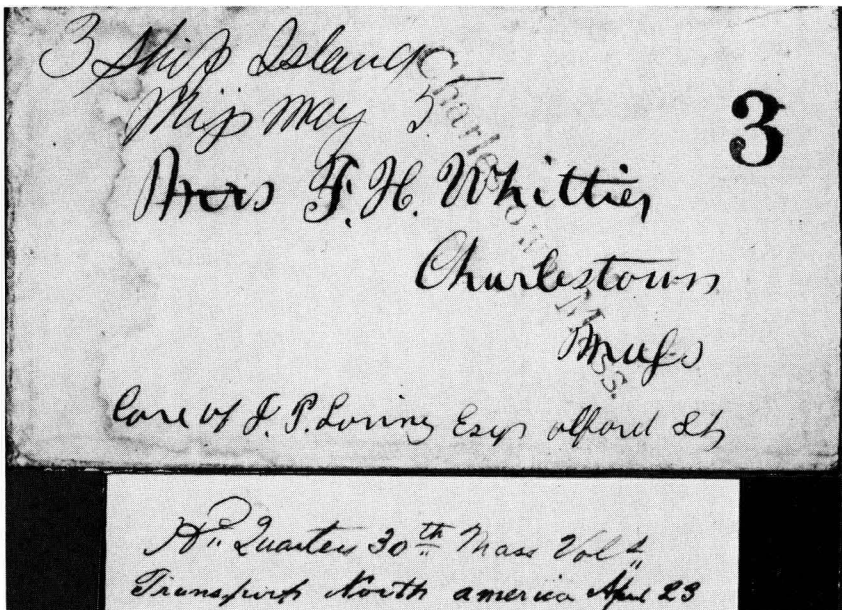 3 Ship Island
Miss May 5
3
Charlestown Mass.
Mrs F. H. Whittier
Charlestown
Mass
Care of J. P. Loring Esqr Alford St
Hd. Quarters 30th Mass Vols
Transport North America April 23